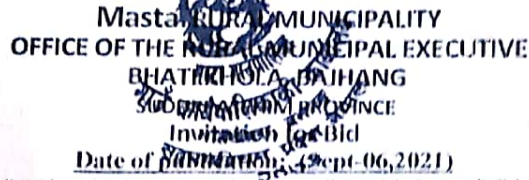 Masta, RURAL MUNICIPALITY
OFFICE OF THE RURAL MUNICIPAL EXECUTIVE
BHATEKHOLA, BAJHANG
PROVINCE
Invitation for Bid
Date of publication: (Sept-06,2021)